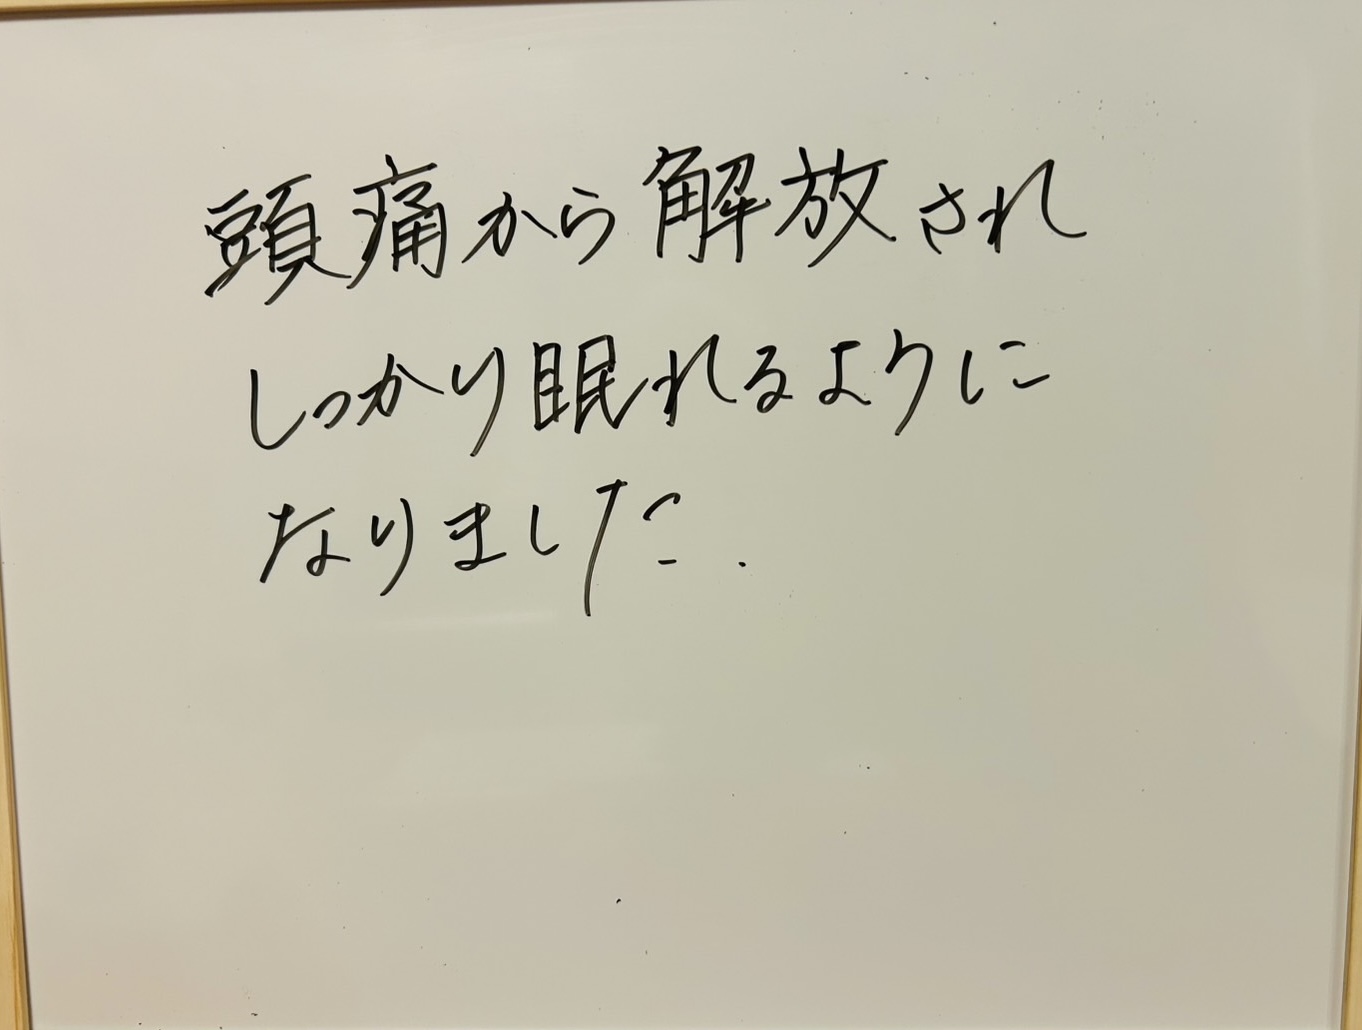 頭痛から解放され
しっかり眠れるように
なりました.